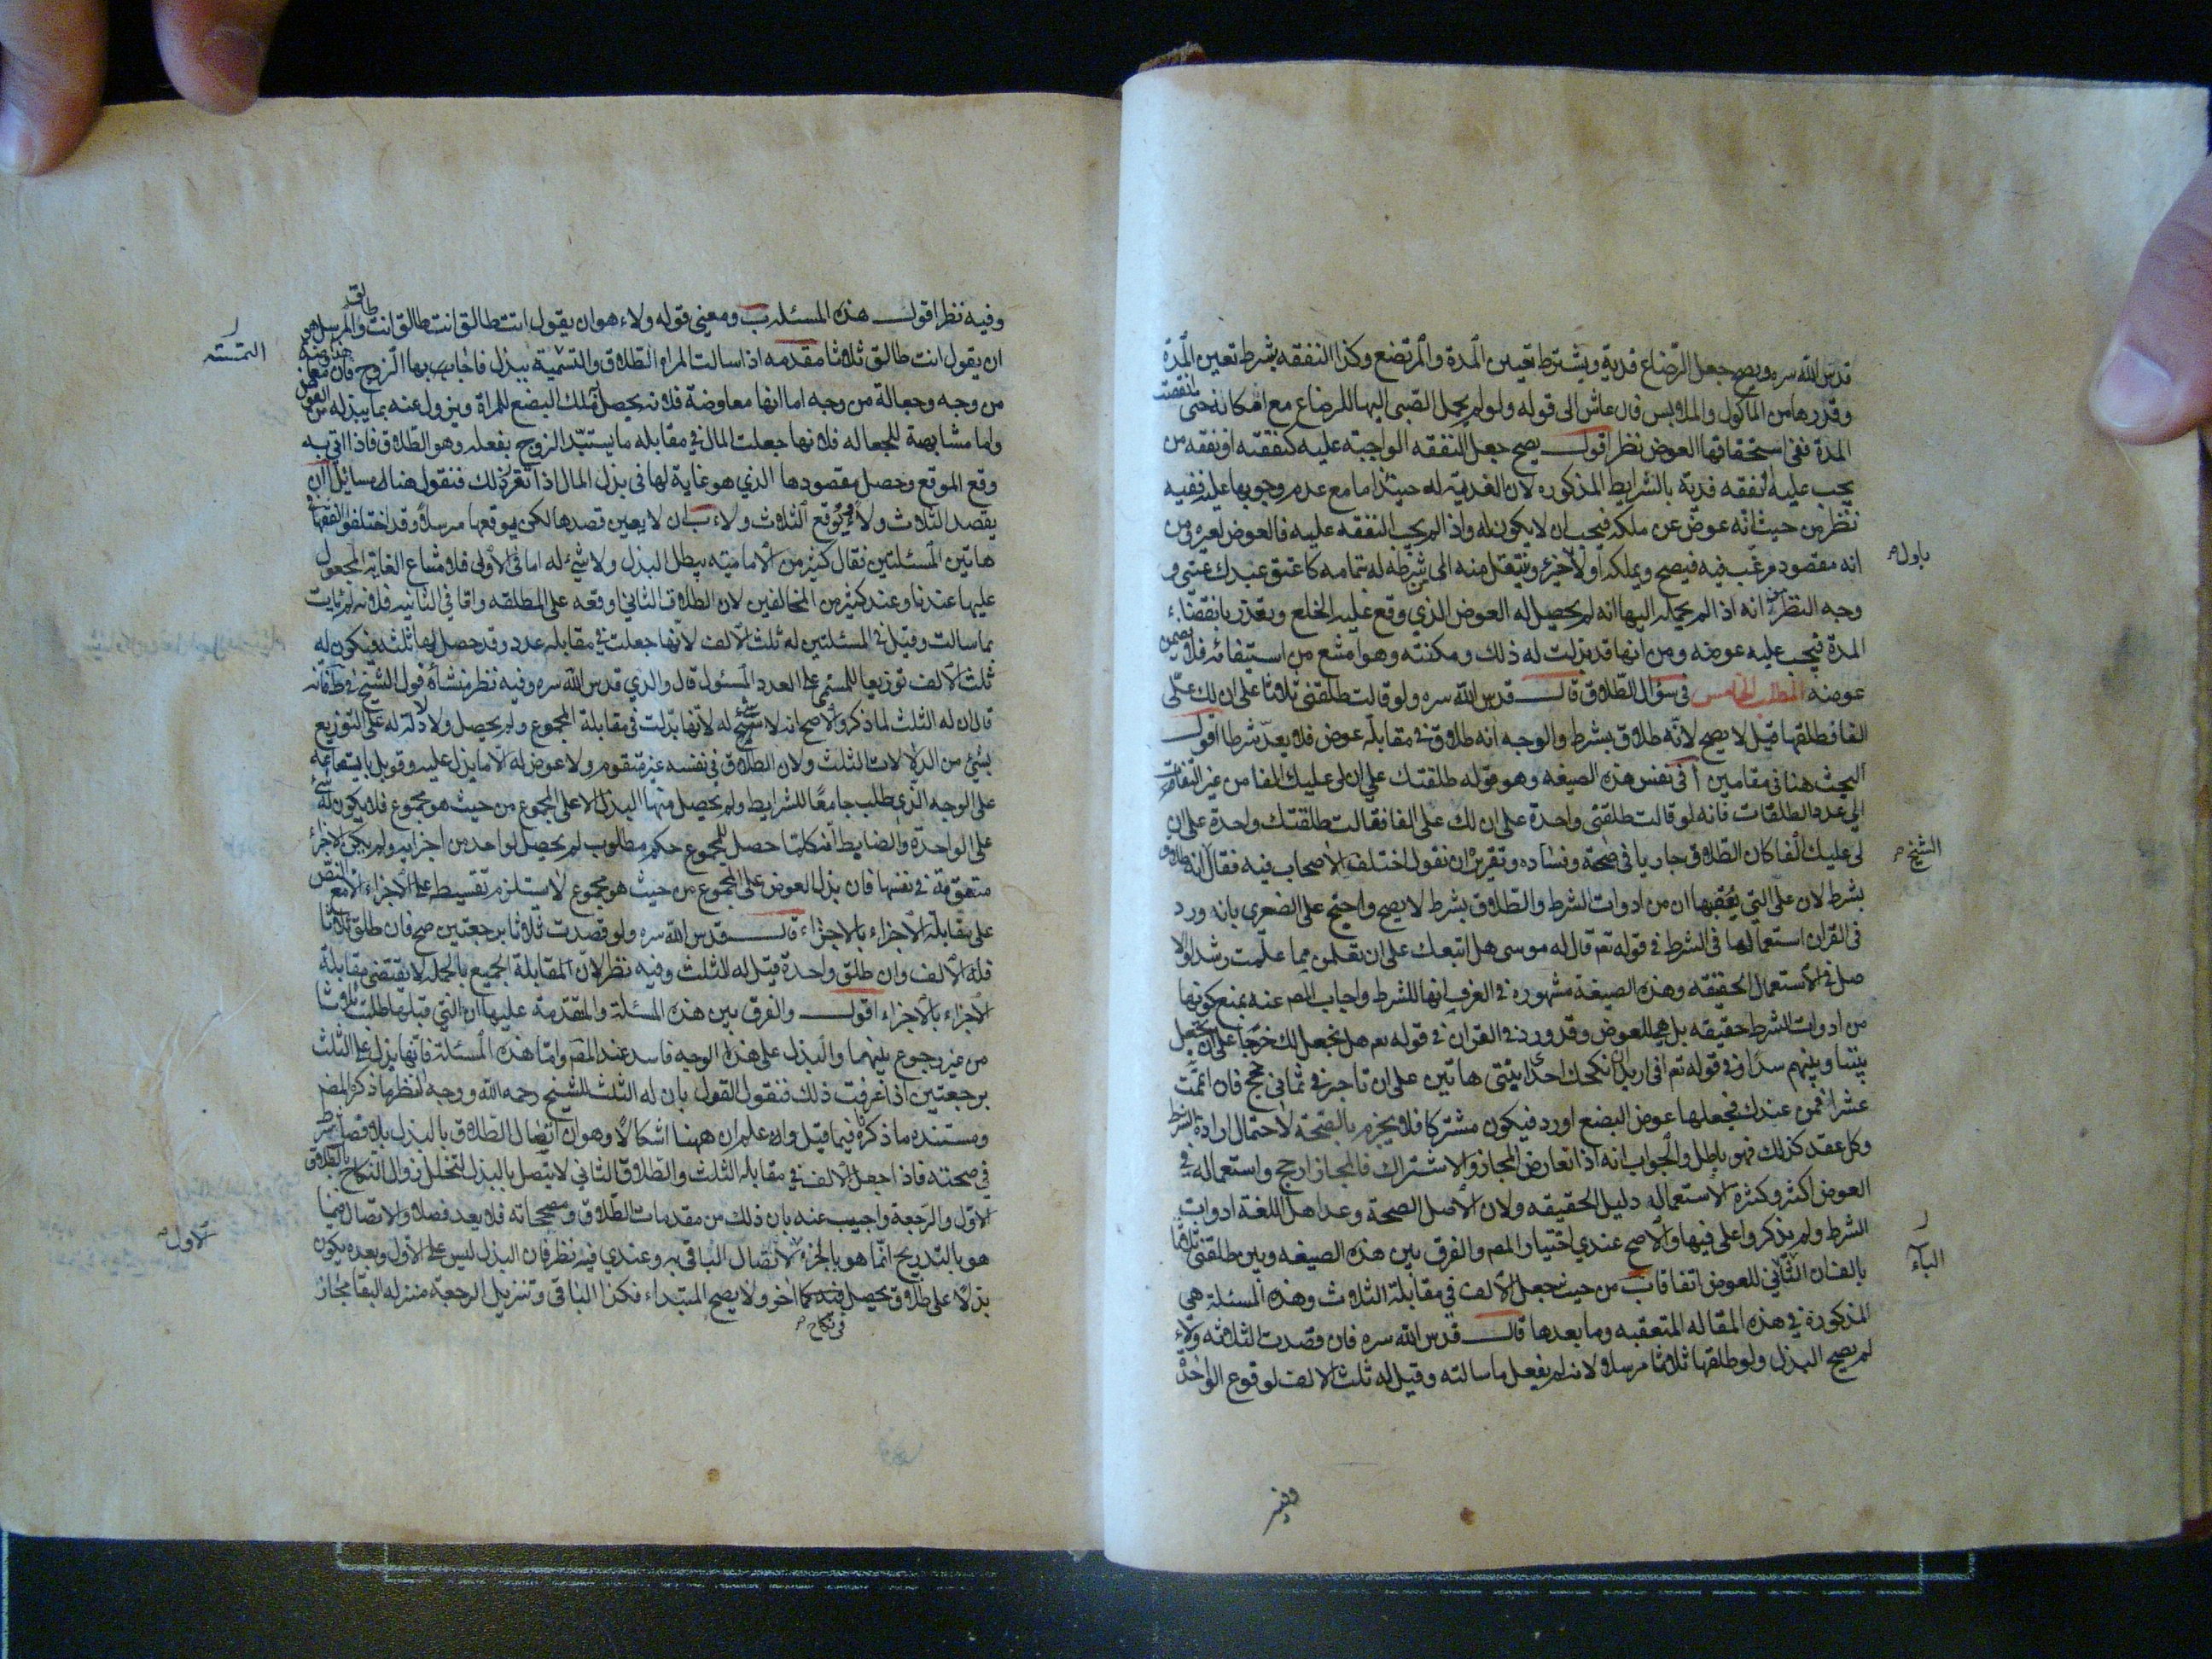 قدس الله سره ويصح جعل الرضاع فدية ويشترط تعيين المدة والمرتضع وكذا النفقه بشرط تعين المدة
وقدرها من الماكول والملابس فان عاش الى قوله ولو لم يحمل الصبى اليها للرضاع مع امكانه حتى انقضت
المدة ففى استحقاقها العوض نظر اقول يصح جعل النفقه الواجبة عليه كنفقته او نفقه من
يجب عليه نفقه فدية بالشرايط المذكوره لان الفدية له حينئذ اما مع عدم وجوبها عليه ففيه
نظر من حيث انه عوض عن ملكه فيجب ان لا يكون له واذا لم يجب النفقه عليه فالعوض لغيره ومن
انه مقصود مرغب فيه فيصح ويملكه اولا غيره وينتقل منه الى شرطه له بتمامه كاعتق عبدك عنى و
باول
وجه النظر من انه اذا لم يحمله اليها انه لم يحصل له العوض الذي وقع عليه الخلع وتعذر بانقضاء
المدة فيجب عليه عوضه ومن انها قد بذلت له ذلك ومكنته وهو امتنع من استيفائه فلا يضمن
عوضه المطلب الخامس فى سؤال الطلاق قال قدس الله سره ولو قالت طلقنى ثلاثا على ان لك على
الفا فطلقها قيل لا يصح لانه طلاق بشرط والوجه انه طلاق فى مقابلة عوض فلا يعد شرطا اقول
البحث هنا فى مقامين ا فى نفس هذه الصيغه وهو قوله طلقتك على ان لى عليك الفا من غير التفات
الى عدد الطلقات فانه لو قالت طلقنى واحدة على ان لك على الفا فقالت طلقتك واحدة على ان
لى عليك الفا كان الطلاق جاريا فى صحة وفساده وتقريره ان نقول اختلف الاصحاب فيه فقال انه طلاق
الشيخ
بشرط لان على التى يعقبها ان من ادوات الشرط والطلاق بشرط لا يصح واحتج على الصغرى بانه ورد
فى القران استعمالها فى الشرط فى قوله تعم قال له موسى هل اتبعك على ان تعلمن مما علمت رشدا والا
صل فى الاستعمال الحقيقه وهذه الصيغة مشهوره فى العرف انها للشرط واجاب المص عنه بمنع كونها
من ادوات الشرط حقيقه بل هى للعوض وقد ورد فى القران فى قوله تعم هل نجعل لك خرجا على ان تجعل
بيننا وبينهم سدا وفى قوله تعم انى اريد ان انكحك احدى ابنتى هاتين على ان تاجرنى ثمانى حجج فان اتممت
عشرا فمن عندك فجعلها عوض البضع اورد فيكون مشتركا فلا يجزم بالصحة لاحتمال ارادة الشرط
وكل عقد كذلك فهو باطل والجواب انه اذا تعارض المجاز والاشتراك فالمجاز ارجح واستعماله فى
العوض اكثر وكثرة الاستعماله دليل الحقيقه ولان الاصل الصحة وعد اهل اللغة ادوات
الشرط ولم يذكروا على فيها والاصح عندي اختيار المص والفرق بين هذه الصيغه وبين طلقنى ثلاثا
بالف ان الثانى للعوض اتفاقا ب من حيث جعل الالف فى مقابلة الثلاث وهذه المسئلة هى
الباء
المذكورة فى هذه المقاله المتعقبه وما بعدها قال قدس الله سره فان قصدت الثلاثه ولاء
لم يصح البذل ولو طلقها ثلاثا مرسلا لانه لم يفعل ما سالته وقيل له ثلث الالف لوقوع الواحدة
وفيه
وفيه نظر اقول هذه المسئله ب ومعنى قوله ولاء هو ان يقول انت طالق انت طالق انت طالق والمرسل هو
ان يقول انت طالق ثلاثا مقدمه اذا سالت المراه الطلاق والتسمية ببذل فاجاب بها الزوج فان معاوضة
من وجه وجعالة من وجه اما انها معاوضة فلانه يحصل تملك البضع للمراة ويزول عنه بما يبذله من العوض
واما مشابهة للجعاله فلانها جعلت المال فى مقابله ما يستبد الزوج بفعله وهو الطلاق فاذا اتى به
وقع الموقع وحصل مقصودها الذي هو غاية لها فى بذل المال اذا تقرر ذلك فنقول هنا مسائل ا ان
يقصد الثلاث ولاء ويوقع الثلاث ولاء ب ان لا يعين قصدها لكن يوقعها مرسلا وقد اختلفوا الفقهاء فى
هاتين المسئلتين فقال كثير من الامامية يبطل البذل ولا شىء له اما فى الاولى فلامتناع الغاية المجعول
عليها عندنا وعند كثير من المخالفين لان الطلاق الثانى اوقعه على المطلقه واما فى الثانيه فلانه لم يات
بما سالت وقيل فى المسئلتين له ثلث الالف لانها جعلت فى مقابله عدد وقد حصل لها ثلثه فيكون له
ثلث الالف توزيعا للمسمى على العدد المسئول قال والدي قدس الله سره وفيه نظر منشأه قول الشيخ فى ط فانه
قال ان له الثلث لما ذكر والاصح انه لا شىء له لانها بذلت فى مقابلة المجموع ولم يحصل ولا دلالة له على التوزيع
بشىء من الدلالات الثلث ولان الطلاق فى نفسه غير متقوم ولا عوض له الا ما بذل عليه وقوبل بايقاعه
على الوجه الذي طلب جامعا للشرايط ولم يحصل منها البذل الا على المجموع من حيث هو مجموع فلا يكون له شىء
على الواحدة والضابط ان كلما حصل للمجموع حكم مطلوب لم يحصل لواحد من اجزايه ولم يكن الاجزاء
متقومة فى نفسها فان بذل العوض على المجموع من حيث هو مجموع لا يستلزم تقسيطه على الاجزاء الا مع النص
على مقابلة الاجزاء بالاجزاء قال قدس الله سره ولو قصدت ثلاثا برجعتين صح فان طلق ثلاثا
فله الالف وان طلق واحدة قيل له الثلث وفيه نظر لان المقابلة الجميع بالجمله لا يقتضى مقابلة
الاجزاء بالاجزاء اقول والفرق بين هذه المسئلة والمتقدمة عليها ان التى قبلها طلبت ثلاثا
من غير رجوع بينهما والبذل على هذا الوجه فاسد عند المص واما هذه المسئلة فانها بذل على الثلث
برجعتين اذا عرفت ذلك فنقول القول بان له الثلث للشيخ رحمه الله ووجه النظر ما ذكره المص
ومستنده ما ذكره فيما قيل واعلم ان ههنا اشكالا وهو ان اتصال الطلاق بالبذل بلا فصل شرط
فى صحته فاذا جعل الالف فى مقابله الثلث والطلاق الثانى لا يتصل بالبذل لتخلل زوال النكاح بالطلاق
الاول والرجعة واجيب عنه بان ذلك من مقدمات الطلاق ومصححاته فلا يعد فصلا والاتصال فيما
هو بالتدريج انما هو بالجزء لاتصال الباقى به وعندي فيه نظر فان البذل ليس على الاول وبعده يكون
الاول
بذلا على طلاق يحصل فيه كما اخر ولا يصح المبتداء فكذا الباقى وتنزيل الرجعة منزله البقا مجاز
فى نكاح